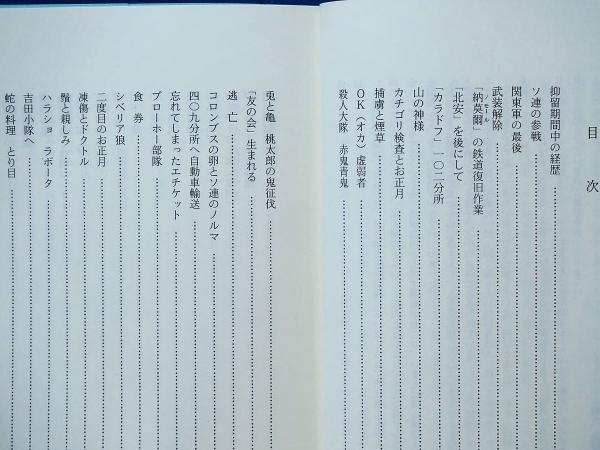 目次
抑留期間中の経歴
ソ連の参戦
関東軍の最後
武装解除
「納莫爾」の鉄道復旧作業
ノモール
「北安」を後にして
「カラドフ」一〇二分所
山の神様
カチゴリ検査とお正月
捕虜と煙草
OK（オカ）虚弱者
殺人大隊 赤鬼青鬼
兎と亀 桃太郎の鬼征伐
「友の会」生まれる
逃亡
コロンブスの卵とソ連のノルマ
四〇九分所へ自動車輸送
忘れてしまったエチケット
ブローホー部隊
食券
シベリア狼
二度目のお正月
凍傷とドクトル
蠶と親しみ
ハラショ ラボータ
吉田小隊へ
蛇の料理 とり目